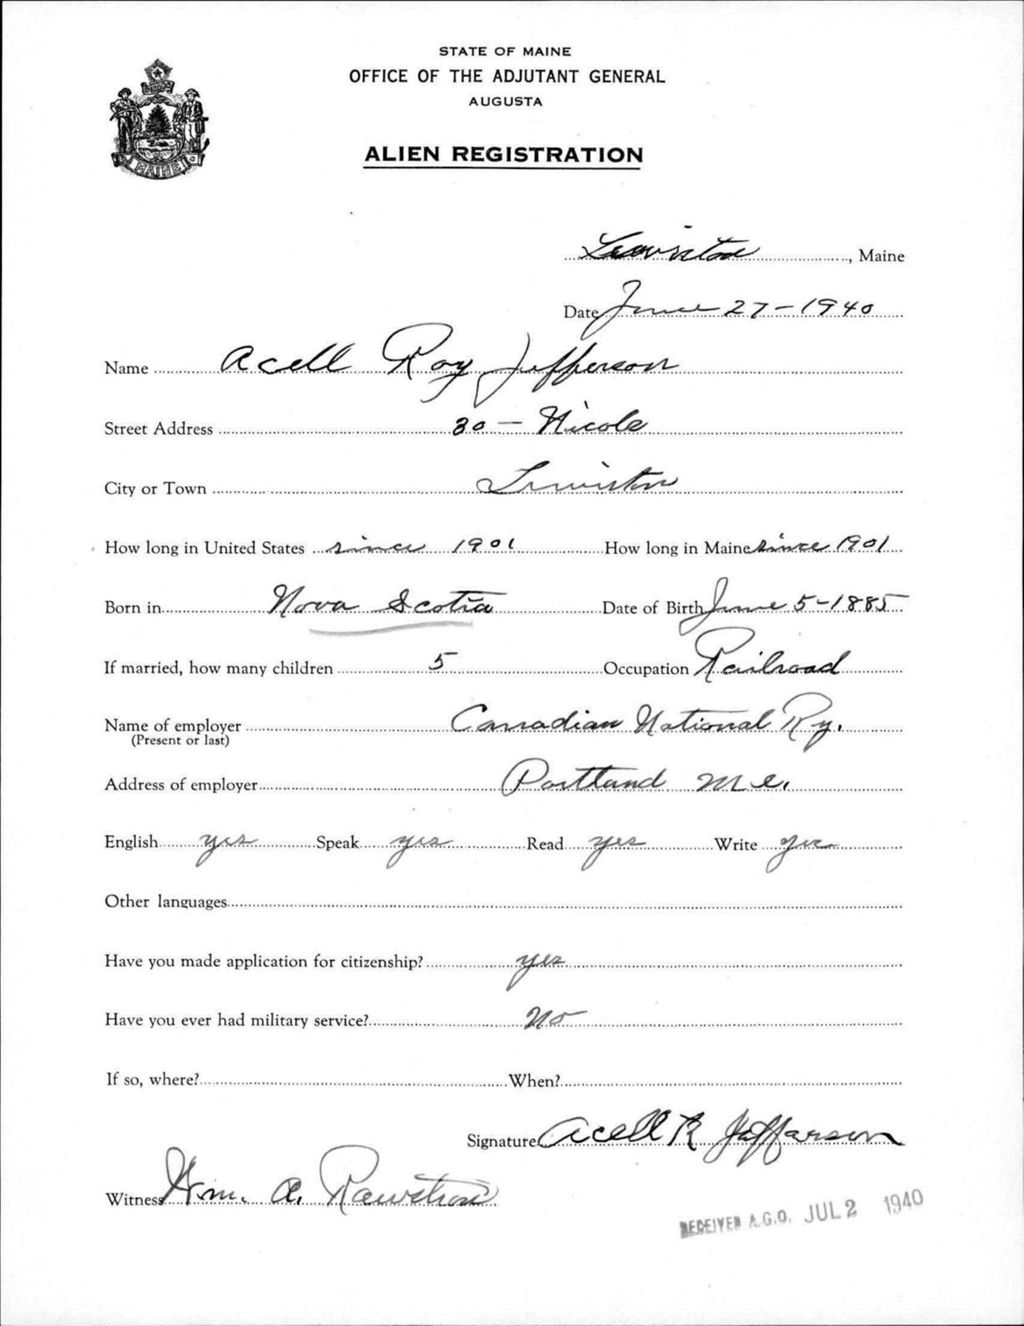 STATE OF MAINE
OFFICE OF THE ADJUTANT GENERAL
AUGUSTA
ALIEN REGISTRATION
MAINE
Lewiston, Maine
Date June 27-1940
Name Acell Roy Jefferson
Street Address 30 - Nicole
City or Town Lewiston
How long in United States since 1901 How long in Maine since 1901
Born in Nova Scotia Date of Birth June 5-1885
If married, how many children 5 Occupation Railroad
Name of employer Canadian National Ry.
(Present or last)
Address of employer Portland Me.
English yes Speak yes Read yes Write yes
Other languages
Have you made application for citizenship? yes
Have you ever had military service? No
If so, where? When?
Signature Acell R Jeffarson
Witness Wm. A. Rawstron
RECEIVED A.G.O. JUL 2 1940